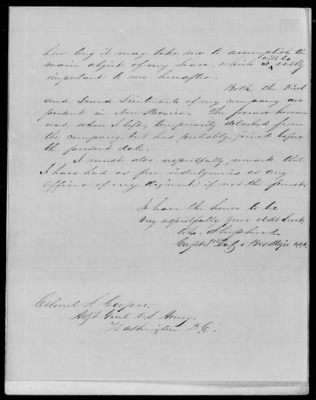 how long it may take me to accomplish the
main object of my leave, which is will be vastly
important to me hereafter.
Both the First
and Second Lieutenants of my company are
present in New Mexico. The former however
was when I left, temporarily detached from
the company but has probably joined before
the present date.
I must also respectfully remark that
I have had as few indulgences as any
Officer of my Regiment if not the fewest.
I have the honor to be
Very respectfully your obdt Servt
O. L. Shepherd
Capt 3d Infy & Bvt Major U.S.A.
Colonel S. Cooper
Adjt Genl U.S. Army
Washington D.C.